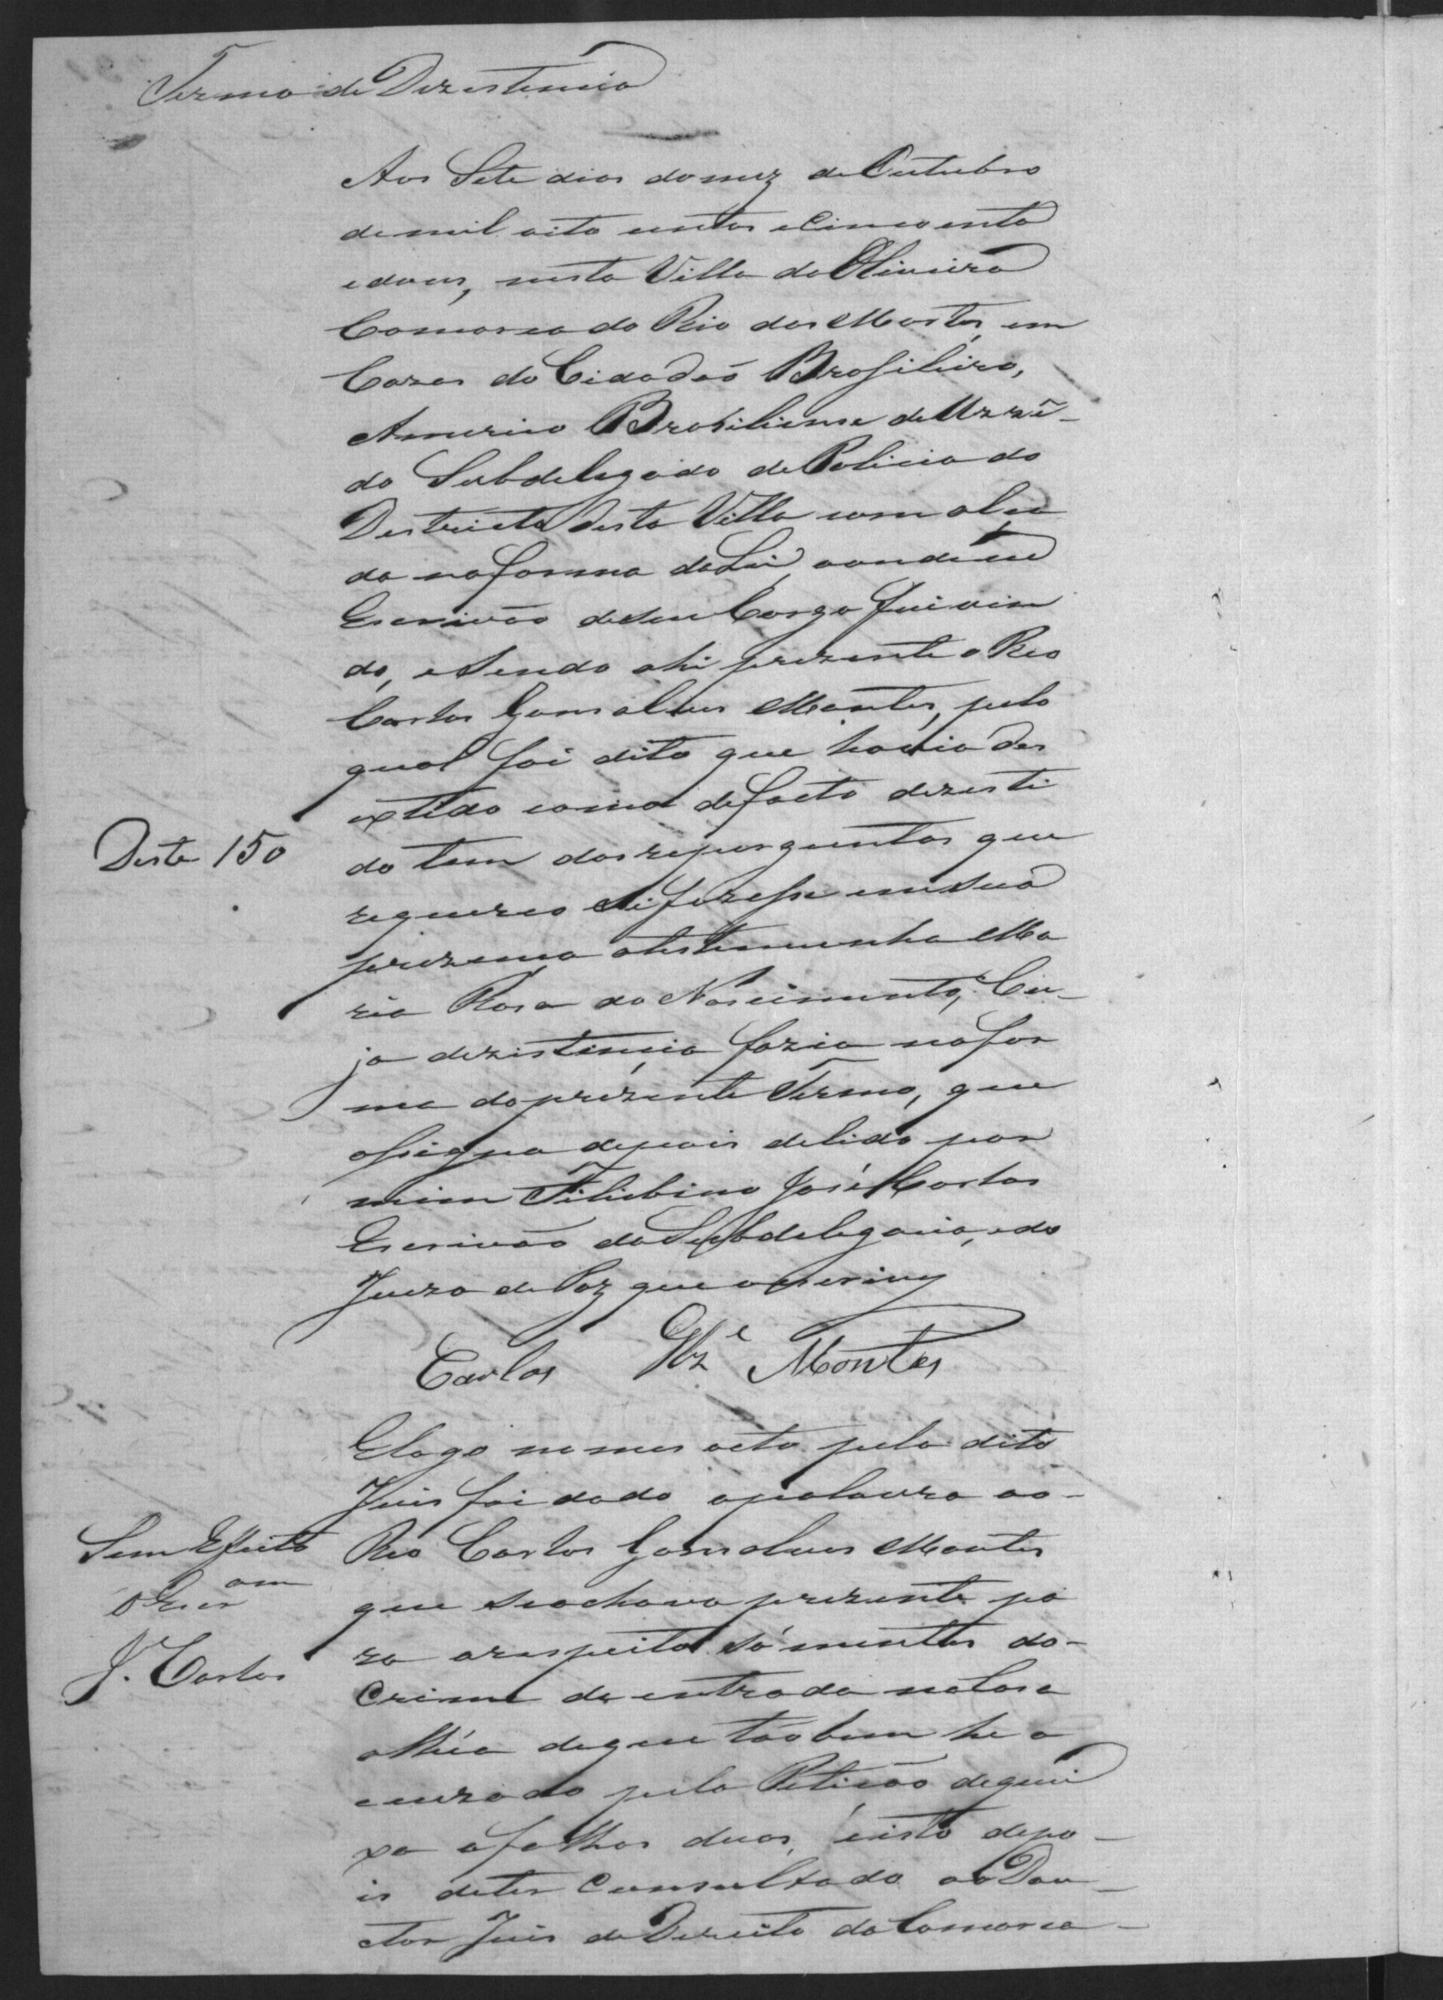 Termo de Dezistencia
Aos Sete dias do mez de Outubro
de mil oito centos e Cincoenta
e dous, nesta Villa de Oliveira
Comarca do Rio das Mortes, em
Cazas do Cidadaõ Brasileiro,
Americo Brasiliense de
do Subdelegado de Policia do
Destricto desta Villa com alca
da na forma da Lei, aonde eu
Escrivão de seu Cargo fui vin
do, e sendo ahi prezente o Reo
Carlos Gonsalves Montes, pelo
qual foi dito que havia des
extido como de facto dezesti
Deste 150
do tem das reperguntas que
requereo se fizesse em sua
prezença a testemunha Ma
ria Roza do Nascimento, Cu-
ja dezistencia fazia na for
ma do prezente Termo, que
assigna depois de lido por
mim José Carlos
Escrivão da Subdelegacia, e do
Juizo de Paz que o escrivy
Carlos Glz.e Montes
E logo no mes acto pelo dito
Juis foi dado a palavra ao-
Sem Effeito
Reo Carlos Gonsalves Montes
O Escr.am
que se achava prezente pa
ra a respeito sómentes do-
J. Carlos
Crime de entrada na Casa
alhéa de que tãobem he a
cuzado pela Petição de quei
xa a folhas duas, e isto depo-
is de ter Consultado ao Dou-
ctor Juis de Direito da Comarca-